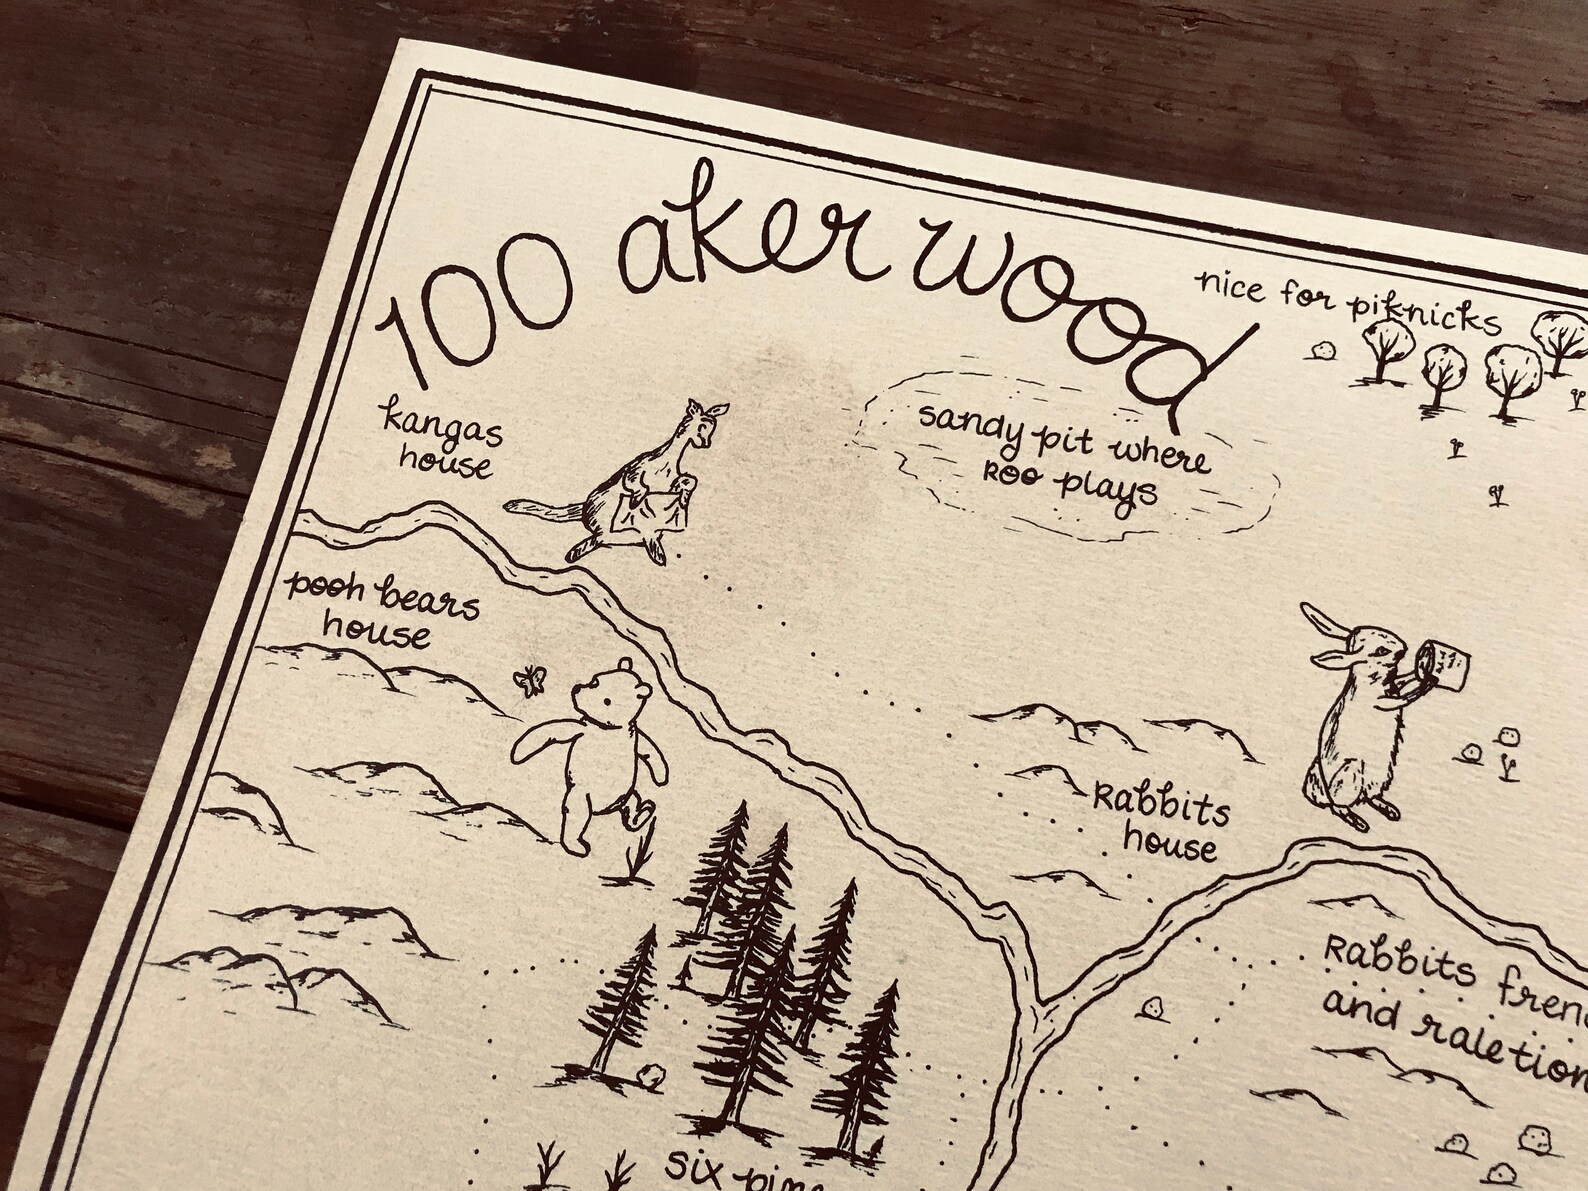 100 aker wood
nice for piknicks
kangas
house
sandy pit where
Roo plays
pooh bears
house
Rabbits
house
Rabbits
and
six